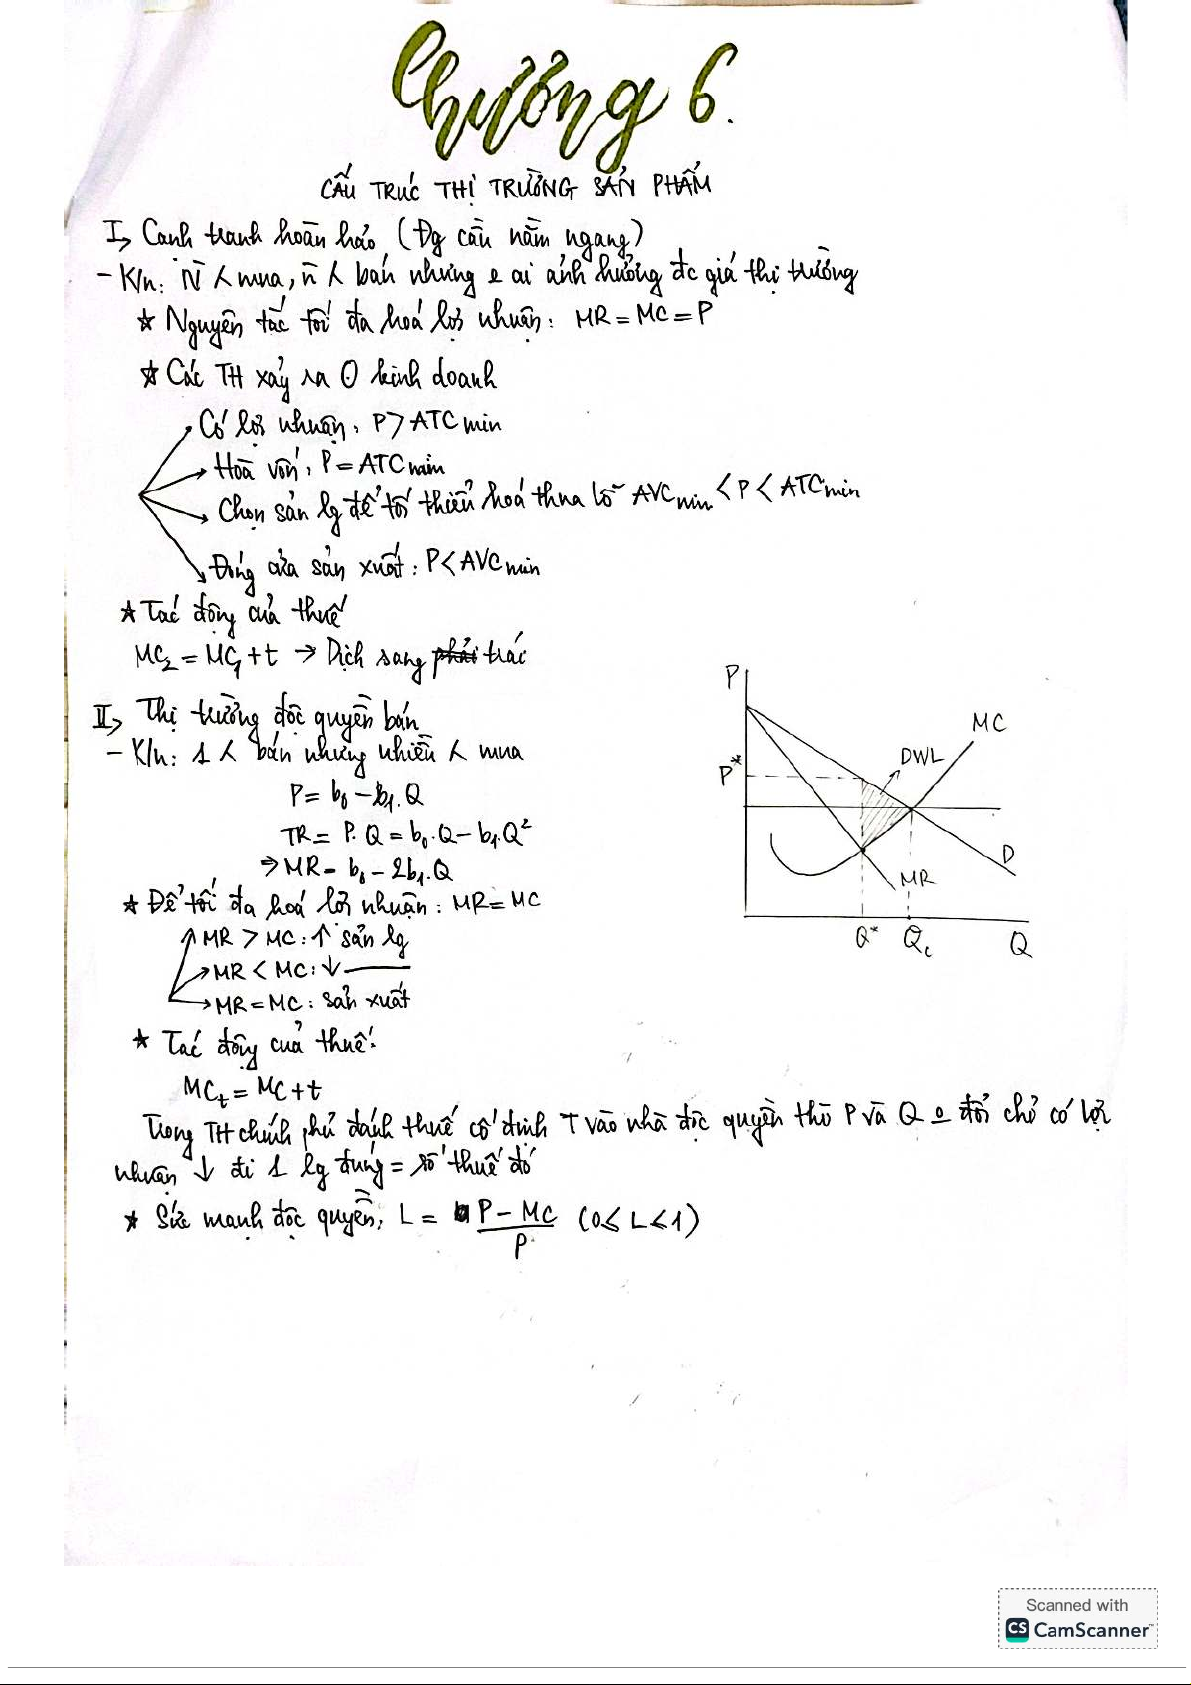 Chương 6.
CẤU TRÚC THỊ TRƯỜNG SẢN PHẨM
I, Cạnh tranh hoàn hảo (Đg cầu nằm ngang)
- K/n: N̄ mua, n̄ bán nhưng ai ảnh hưởng đc giá thị trường
★ Nguyên tắc tối đa hoá lợi nhuận: MR = MC = P
★ Các TH xảy ra kinh doanh
Có lợi nhuận: P > ATC min
Hoà vốn: P = ATC min
Chọn sản lg để tối thiểu hoá thua lỗ AVC min < P < ATC min
Đóng cửa sản xuất: P < AVC min
★ Tác động của thuế
MC₂ = MC₁ + t → Dịch sang phải trái
II, Thị trường độc quyền bán
- K/n: 1 bán nhưng nhiều mua
P = b₀ - b₁.Q
TR = P.Q = b₀.Q - b₁.Q²
⇒ MR = b₀ - 2b₁.Q
★ Để tối đa hoá lợi nhuận: MR = MC
MR > MC: ↑ sản lg
MR < MC: ↓ ——
MR = MC: sản xuất
★ Tác động của thuế:
MCt = MC + t
Trong TH chính phủ đánh thuế cố định T vào nhà độc quyền thì P và Q đổi chỉ có lợi
nhuận ↓ đi 1 lg đúng = số thuế đó
★ Sức mạnh độc quyền: L = P - MC / P (0 ≤ L ≤ 1)
P
MC
DWL
P*
D
MR
Q*
Qc
Q
Scanned with
CS CamScanner